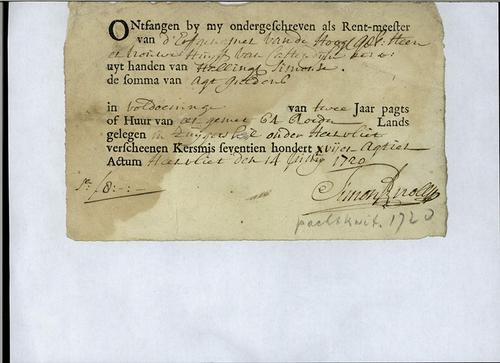 Ontfangen by my ondergeschreven als Rent-meester
van d'Erfgenamen van de Hoog Heer
en vrouwe Huyst van
uyt handen van Simonse
de somma van agt guldens
in voldoeninge van twee Jaar pagts
of Huur van een gemet 62 Roeden Lands
gelegen in onder Heenvliet
verscheenen Kersmis seventien hondert xvijen Agtien
Actum Heenvliet den 14 1720
f 8:-:-
Simon
pachtkwit. 1720